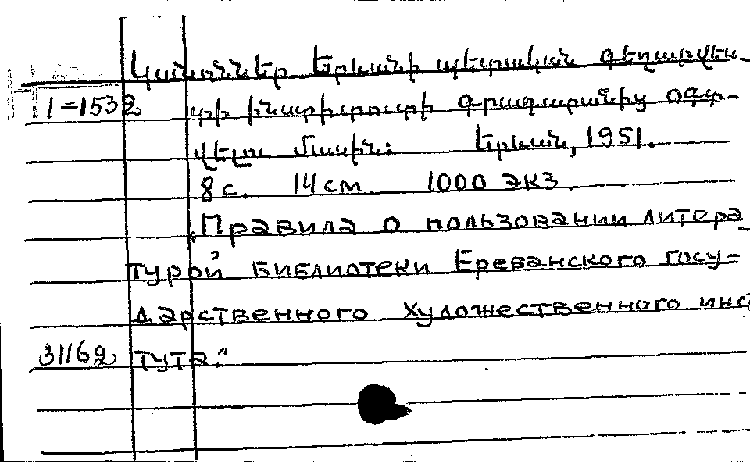 Կանոններ Երևանի պետական գեղարվես-
1-1532 տի ինստիտուտի գրադարանից օգտ-
վելու մասին: Երևան, 1951.
8 с. 14 см 1000 экз.
"Правила о пользовании литера
турой библиотеки Ереванского госу-
дарственного художественного инс
31162 тута."